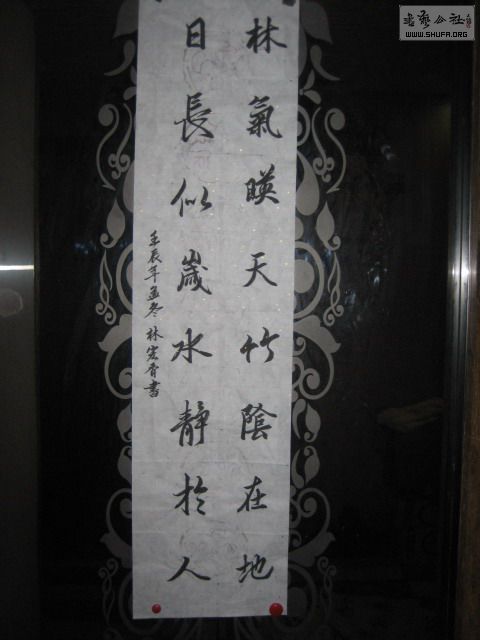 林氣暎天竹陰在地
日長似歲水靜於人
壬辰年孟冬林宏香書
書藝公社
WWW.SHUFA.ORG